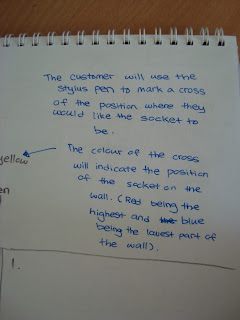 The customer will use the
stylus pen to mark a cross
of the position where they
would like the socket to
be.
yellow
The colour of the cross
will indicate the position
en
of the socket on the
wall. (Red being the
highest and the blue
being the lowest part of
the wall).
1.